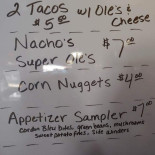 2 Tacos w/ Ole's &
$5.00 Cheese
Nacho's $7.00
Super Ole's
Corn Nuggets $4.00
Appetizer Sampler $7.00
Cordon Bleu bites, green beans, mushrooms
Sweet potato fries,